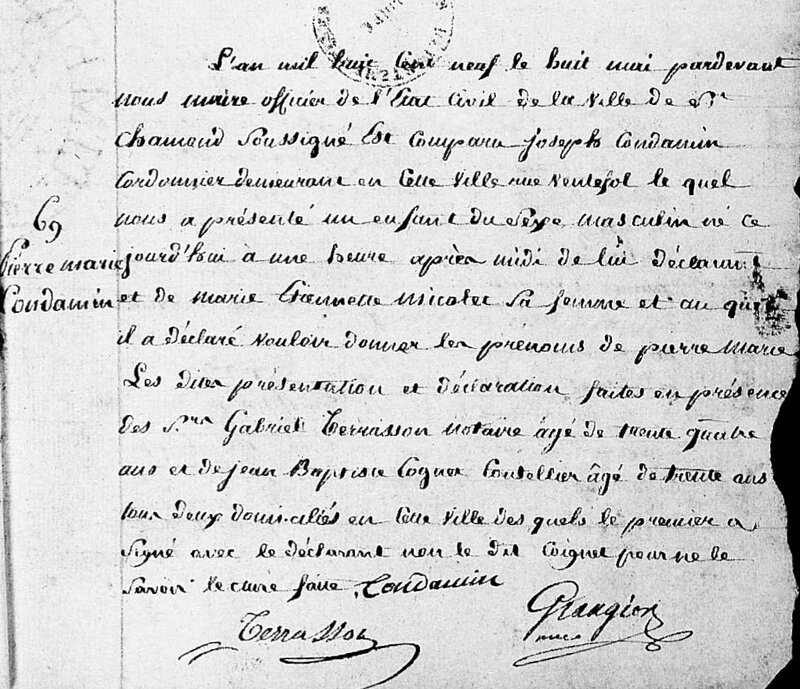 L'an mil huit Cent neuf le huit mai pardevant
nous maire officier de l'Etat Civil de la Ville de St
Chamand Soussigné Est Comparu joseph Condamin
Cordonnier demeurant en Cette Ville rue Ventefol le quel
nous a présenté un enfant du Sexe masculin né ce
69
Pierre marie
Condamin
jourd'hui à une heure après midi de lui déclarant
et de marie Etiennette micolet Sa femme et au quel
il a déclaré vouloir donner les prénoms de pierre marie
Les dites présentation et déclaration faites en présence
des Srs Gabriel Terrasson notaire âgé de trente quatre
ans et de jean Baptiste Cognet Coutellier âgé de trente ans
tous deux domiciliés en Cette Ville des quels le premier a
Signé avec le déclarant non le dit Coignet pour ne le
Savoir lecture faite. Condamin
Terrasson